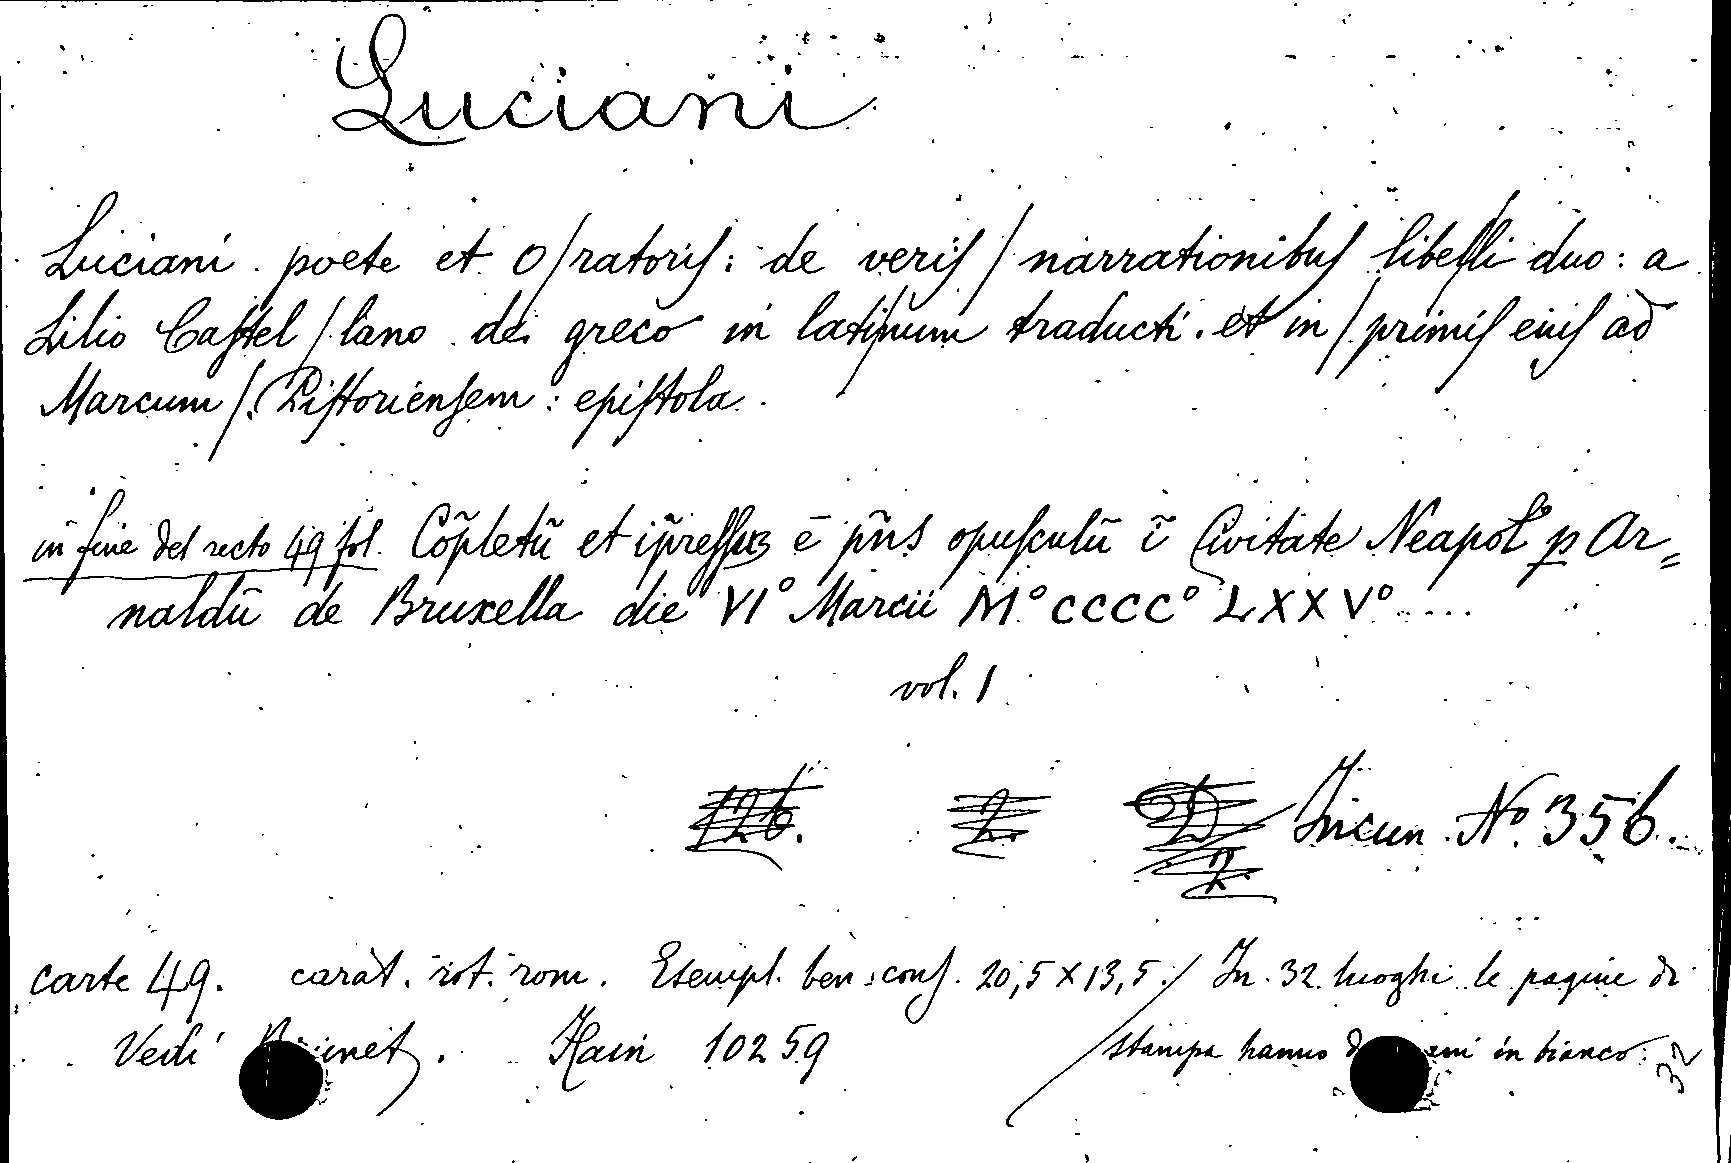 Luciani
Luciani poete et O/ratoriſ: de veriſ / narrationibuſ libelli duo: a
Lilio Caſtel / lano de greco in latinum traducti. et in / primiſ eiuſ ad
Marcum /. Piſtorienſem: epiſtola.
in fine del recto 49 fol. Cõpletũ et ĩpreſſuʒ ē pn̄s opuſculũ ĩ Civitate Neapol̃ ꝑ Ar=
naldũ de Bruxella die VI° Marcii M° CCCC° LXXV°....
vol. 1
126. 2. D Incun. N° 356.
2.
carte 49. carat. rot. rom. Esempl. ben conſ. 20,5 x 13,5. / In 32 luoghi le pagine di
Vedi . Hain 10259 / stampa hanno in bianco. 32